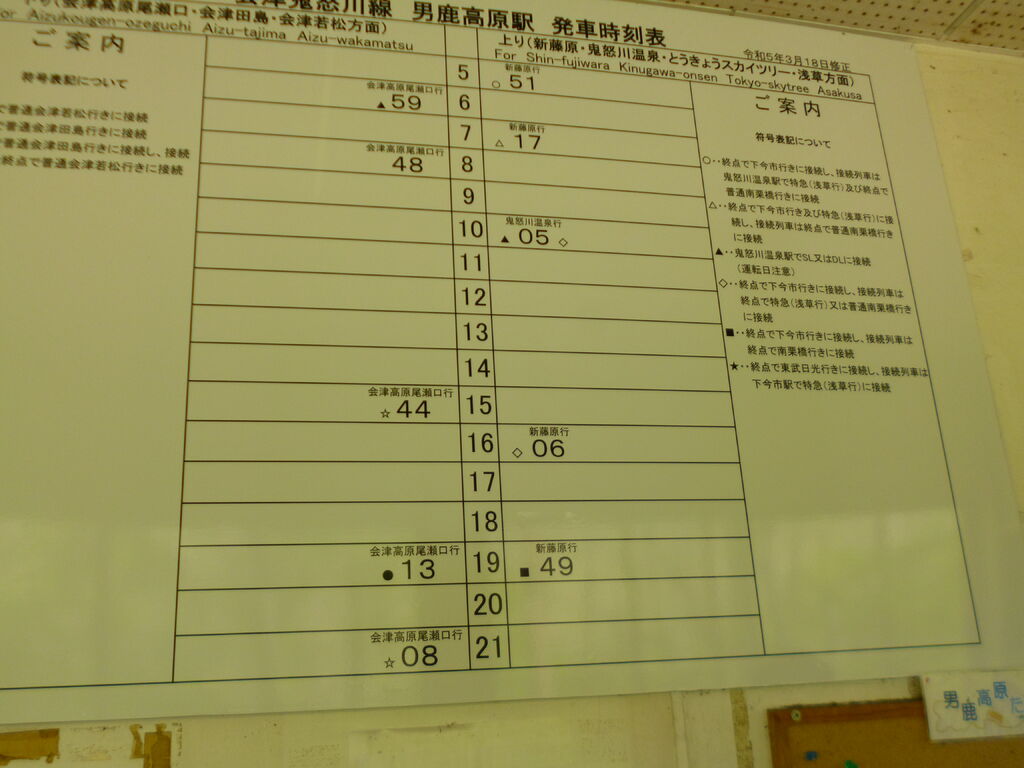 会津鬼怒川線 男鹿高原駅 発車時刻表
令和5年3月18日修正
会津高原尾瀬口・会津田島・会津若松方面)
For Aizukougen-ozeguchi Aizu-tajima Aizu-wakamatsu
上り(新藤原・鬼怒川温泉・とうきょうスカイツリー・浅草方面)
For Shin-fujiwara Kinugawa-onsen Tokyo-skytree Asakusa
ご案内
符号表記について
で普通会津若松行きに接続
で普通会津田島行きに接続
で普通会津田島行きに接続し、接続
終点で普通会津若松行きに接続
5
新藤原行
○ 51
会津高原尾瀬口行
▲59
6
7
新藤原行
△ 17
会津高原尾瀬口行
48
8
9
10
鬼怒川温泉行
▲ 05 ◇
11
12
13
14
会津高原尾瀬口行
☆44
15
16
新藤原行
◇ 06
17
18
会津高原尾瀬口行
●13
19
新藤原行
■ 49
20
会津高原尾瀬口行
☆08
21
ご案内
符号表記について
○‥終点で下今市行きに接続し、接続列車は
鬼怒川温泉駅で特急(浅草行)及び終点で
普通南栗橋行きに接続
△‥終点で下今市行き及び特急(浅草行)に接
続し、接続列車は終点で普通南栗橋行き
に接続
▲‥鬼怒川温泉駅でSL又はDLに接続
(運転日注意)
◇‥終点で下今市行きに接続し、接続列車は
終点で特急(浅草行)又は普通南栗橋行き
に接続
■‥終点で下今市行きに接続し、接続列車は
終点で南栗橋行きに接続
★‥終点で東武日光行きに接続し、接続列車は
下今市駅で特急(浅草行)に接続
男鹿高原だ